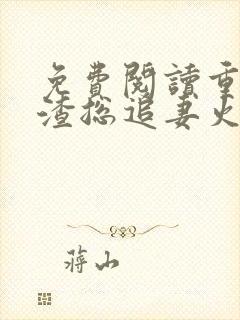 免費閱讀重
渣總追妻火
蔣山